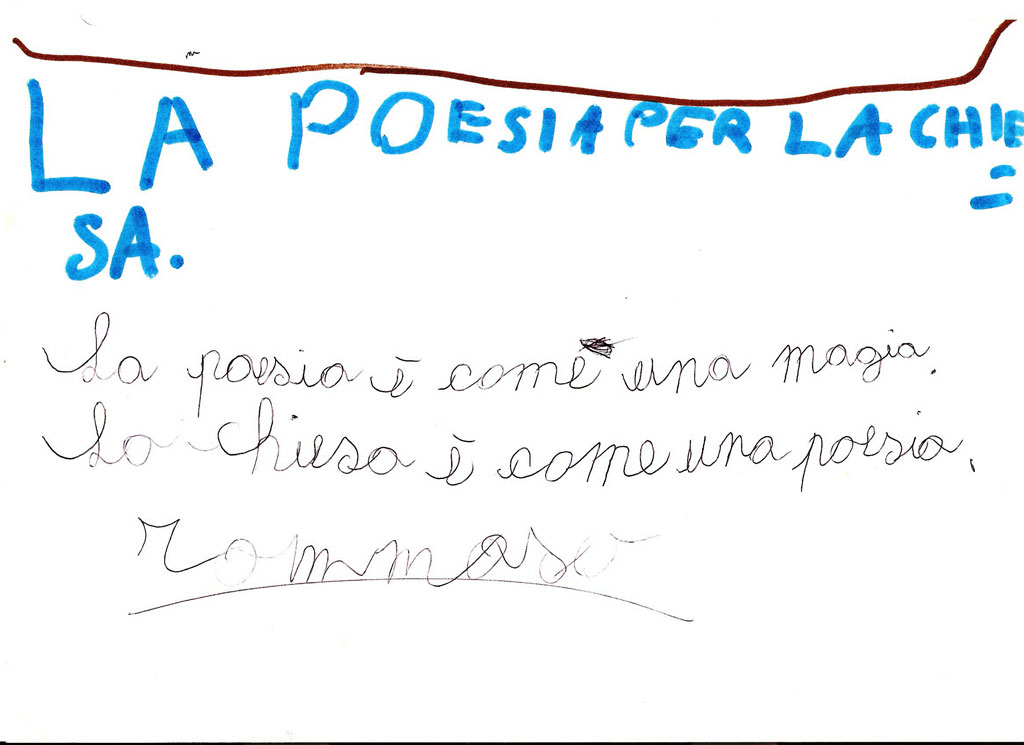 LA POESIA PER LA CHIE=
SA.
La poesia è come una magia.
La chiesa è come una poesia.
Tommaso